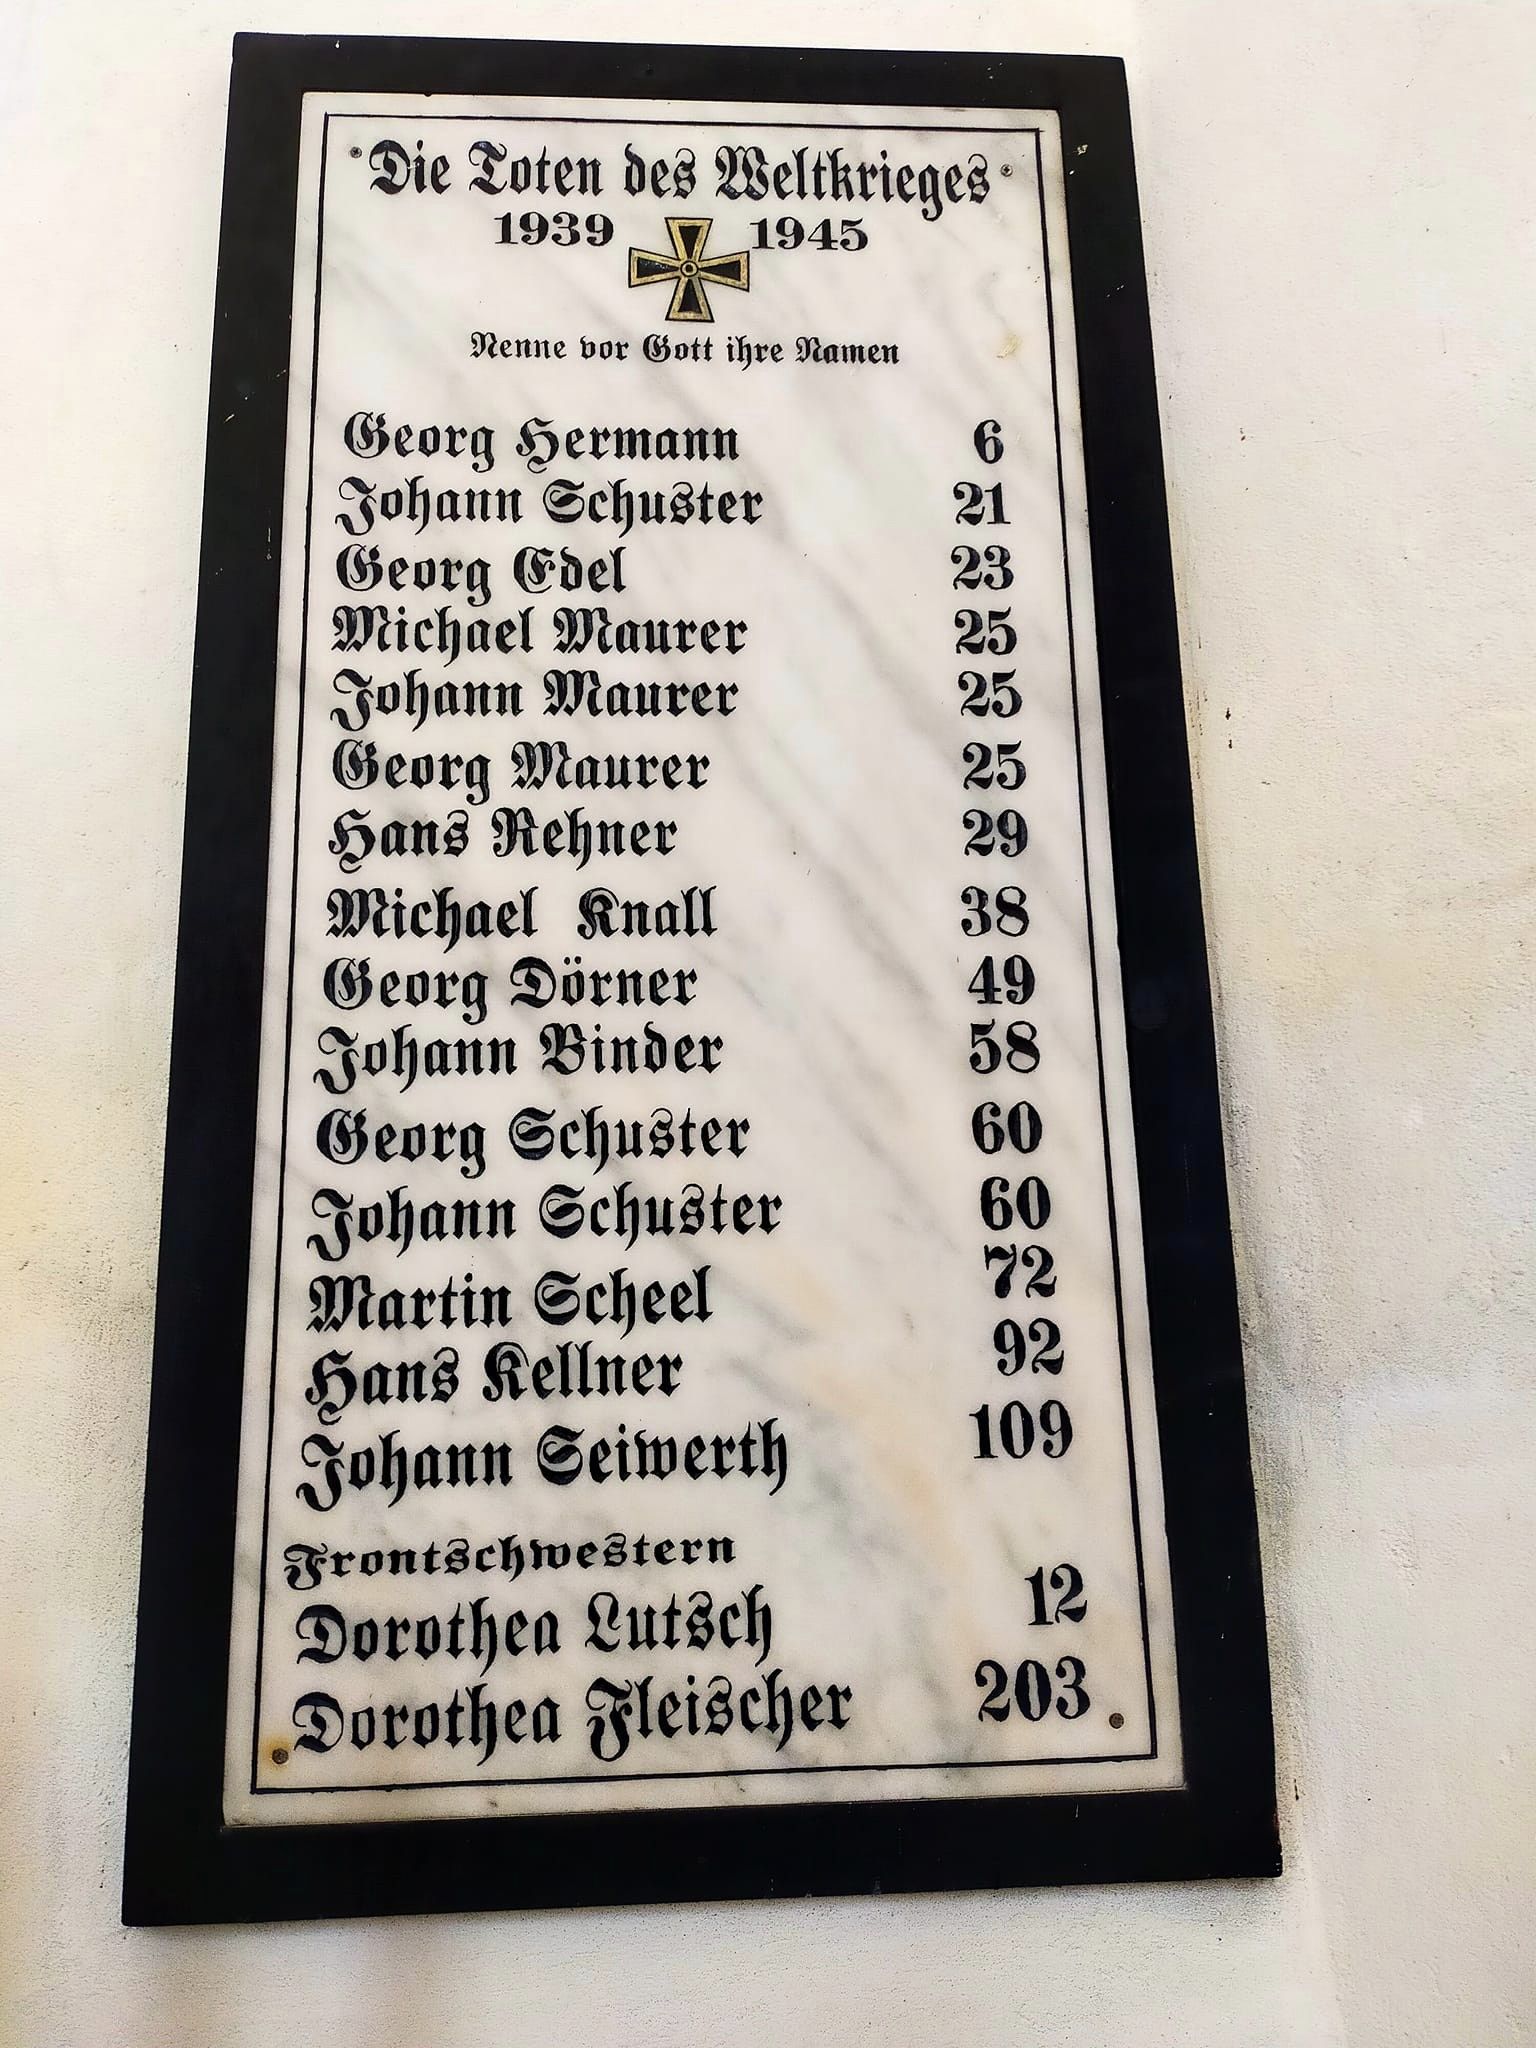 Die Toten des Weltkrieges
1939 1945
Nenne vor Gott ihre Namen
Georg Hermann 6
Johann Schuster 21
Georg Edel 23
Michael Maurer 25
Johann Maurer 25
Georg Maurer 25
Hans Rehner 29
Michael Knall 38
Georg Dörner 49
Johann Binder 58
Georg Schuster 60
Johann Schuster 60
Martin Scheel 72
Hans Kellner 92
Johann Seiwerth 109
Frontschwestern
Dorothea Lutsch 12
Dorothea Fleischer 203